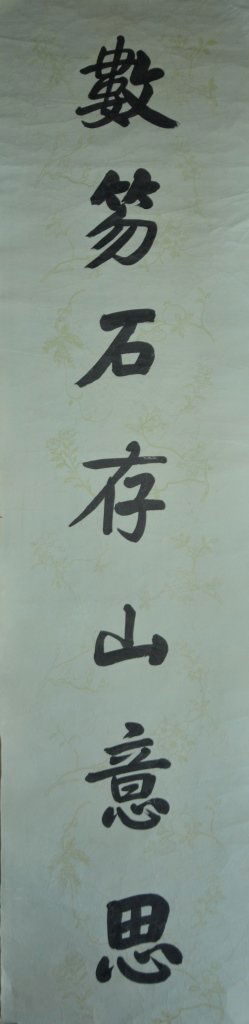 數笏石存山意思